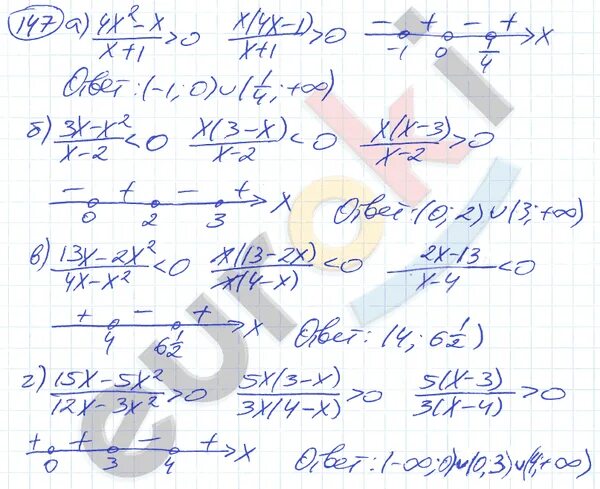 147 а) (4x² - x)/(x+1) > 0   x(4x-1)/(x+1) > 0   - + - + -1 0 1/4 x
Ответ: (-1; 0) ∪ (1/4; +∞)
б) (3x - x²)/(x-2) < 0   x(3-x)/(x-2) < 0   x(x-3)/(x-2) > 0
- + - + 0 2 3 x   Ответ: (0; 2) ∪ (3; +∞)
в) (13x - 2x²)/(4x - x²) < 0   x(13-2x)/x(4-x) < 0   (2x-13)/(x-4) < 0
+ - + 4 6 1/2 x   Ответ: (4; 6 1/2)
г) (15x - 5x²)/(12x - 3x²) > 0   5x(3-x)/3x(4-x) > 0   5(x-3)/3(x-4) > 0
+ + - + 0 3 4 x   Ответ: (-∞; 0) ∪ (0; 3) ∪ (4; +∞)
euroki